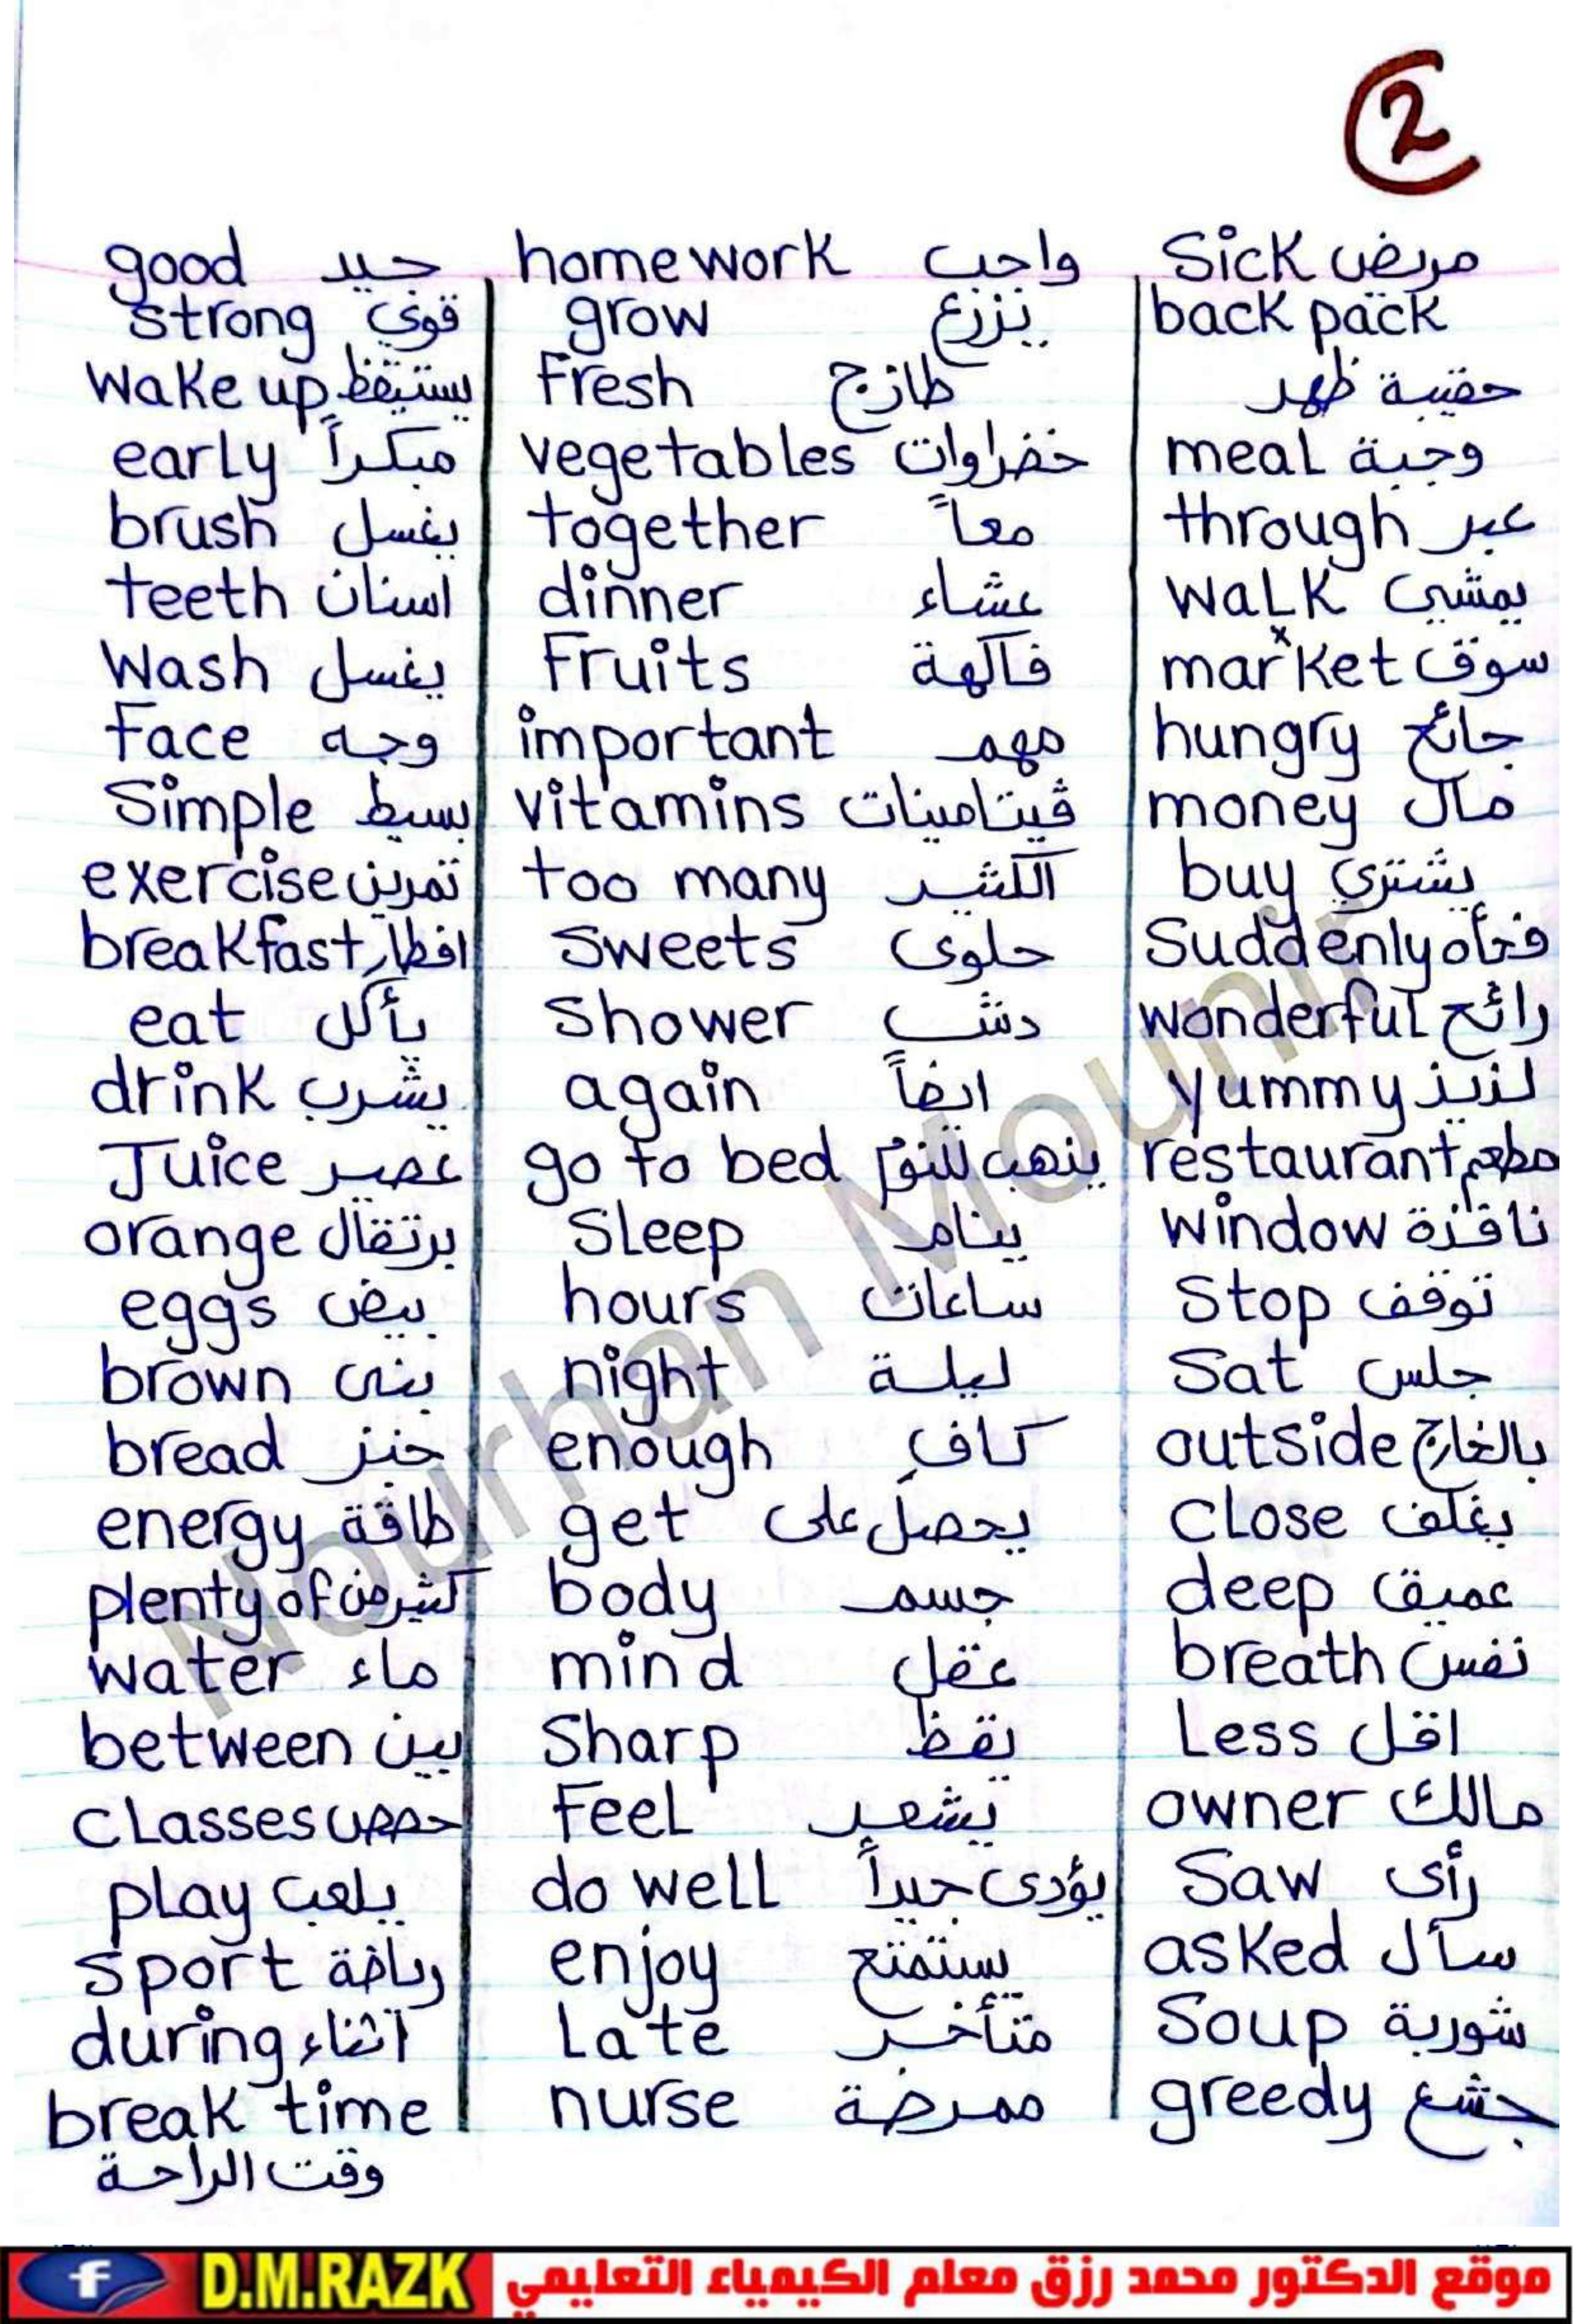 2
good جيد
strong قوي
wake up يستيقظ
early مبكراً
brush يغسل
teeth اسنان
Wash يغسل
Face وجه
Simple بسيط
exercise تمرين
breakfast افطار
eat يأكل
drink يشرب
Juice عصير
orange برتقال
eggs بيض
brown بنى
bread خبز
energy طاقة
plenty of كثير من
water ماء
between بين
classes حصص
play يلعب
sport رياضة
during اثناء
break time
وقت الراحة
homework واجب
grow يزرع
Fresh طازج
vegetables خضراوات
together معاً
dinner عشاء
Fruits فاكهة
important مهم
vitamins ڤيتامينات
too many الكثير
Sweets حلوى
Shower دش
again ايضاً
go to bed يذهب للنوم
Sleep ينام
hours ساعات
night ليلة
enough كافٍ
get يحصل على
body جسم
mind عقل
Sharp يقظ
Feel يشعر
do well يؤدى جيداً
enjoy يستمتع
Late متأخر
nurse ممرضة
Sick مريض
back pack
حقيبة ظهر
meal وجبة
through عبر
walk يمشي
market سوق
hungry جائع
money مال
buy يشتري
Suddenly فجأه
wonderful رائع
yummy لذيذ
restaurant مطعم
window نافذة
Stop توقف
Sat جلس
outside بالخارج
close يغلف
deep عميق
breath نفس
Less اقل
owner مالك
Saw رأى
asked سأل
Soup شوربة
greedy جشع
Nourhan Mounir
f D.M.RAZK موقع الدكتور محمد رزق معلم الكيمياء التعليمي